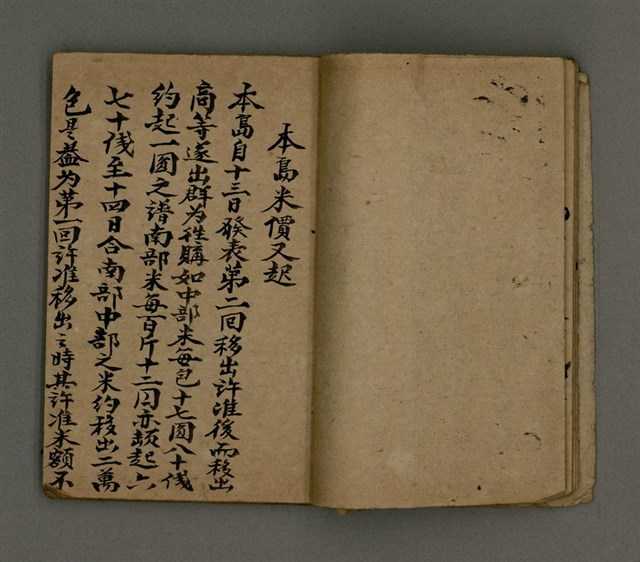 本島米價又起
本島自十三日發表第二回移出許准後而移出
商等遂出群为徃購如中部米每包十七圓八十伐
約起一圓之譜南部米每百斤十二円亦頗起六
七十伐至十四日合南部中部之米約移出二萬
包是益为第一回許准移出之時其許准米額不